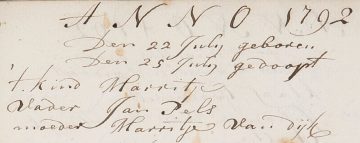 ANNO 1792
Den 22 July geboren
Den 25 July gedoopt
't kind Marritje
Vader Jan Pels
moeder Marritje Van dijk